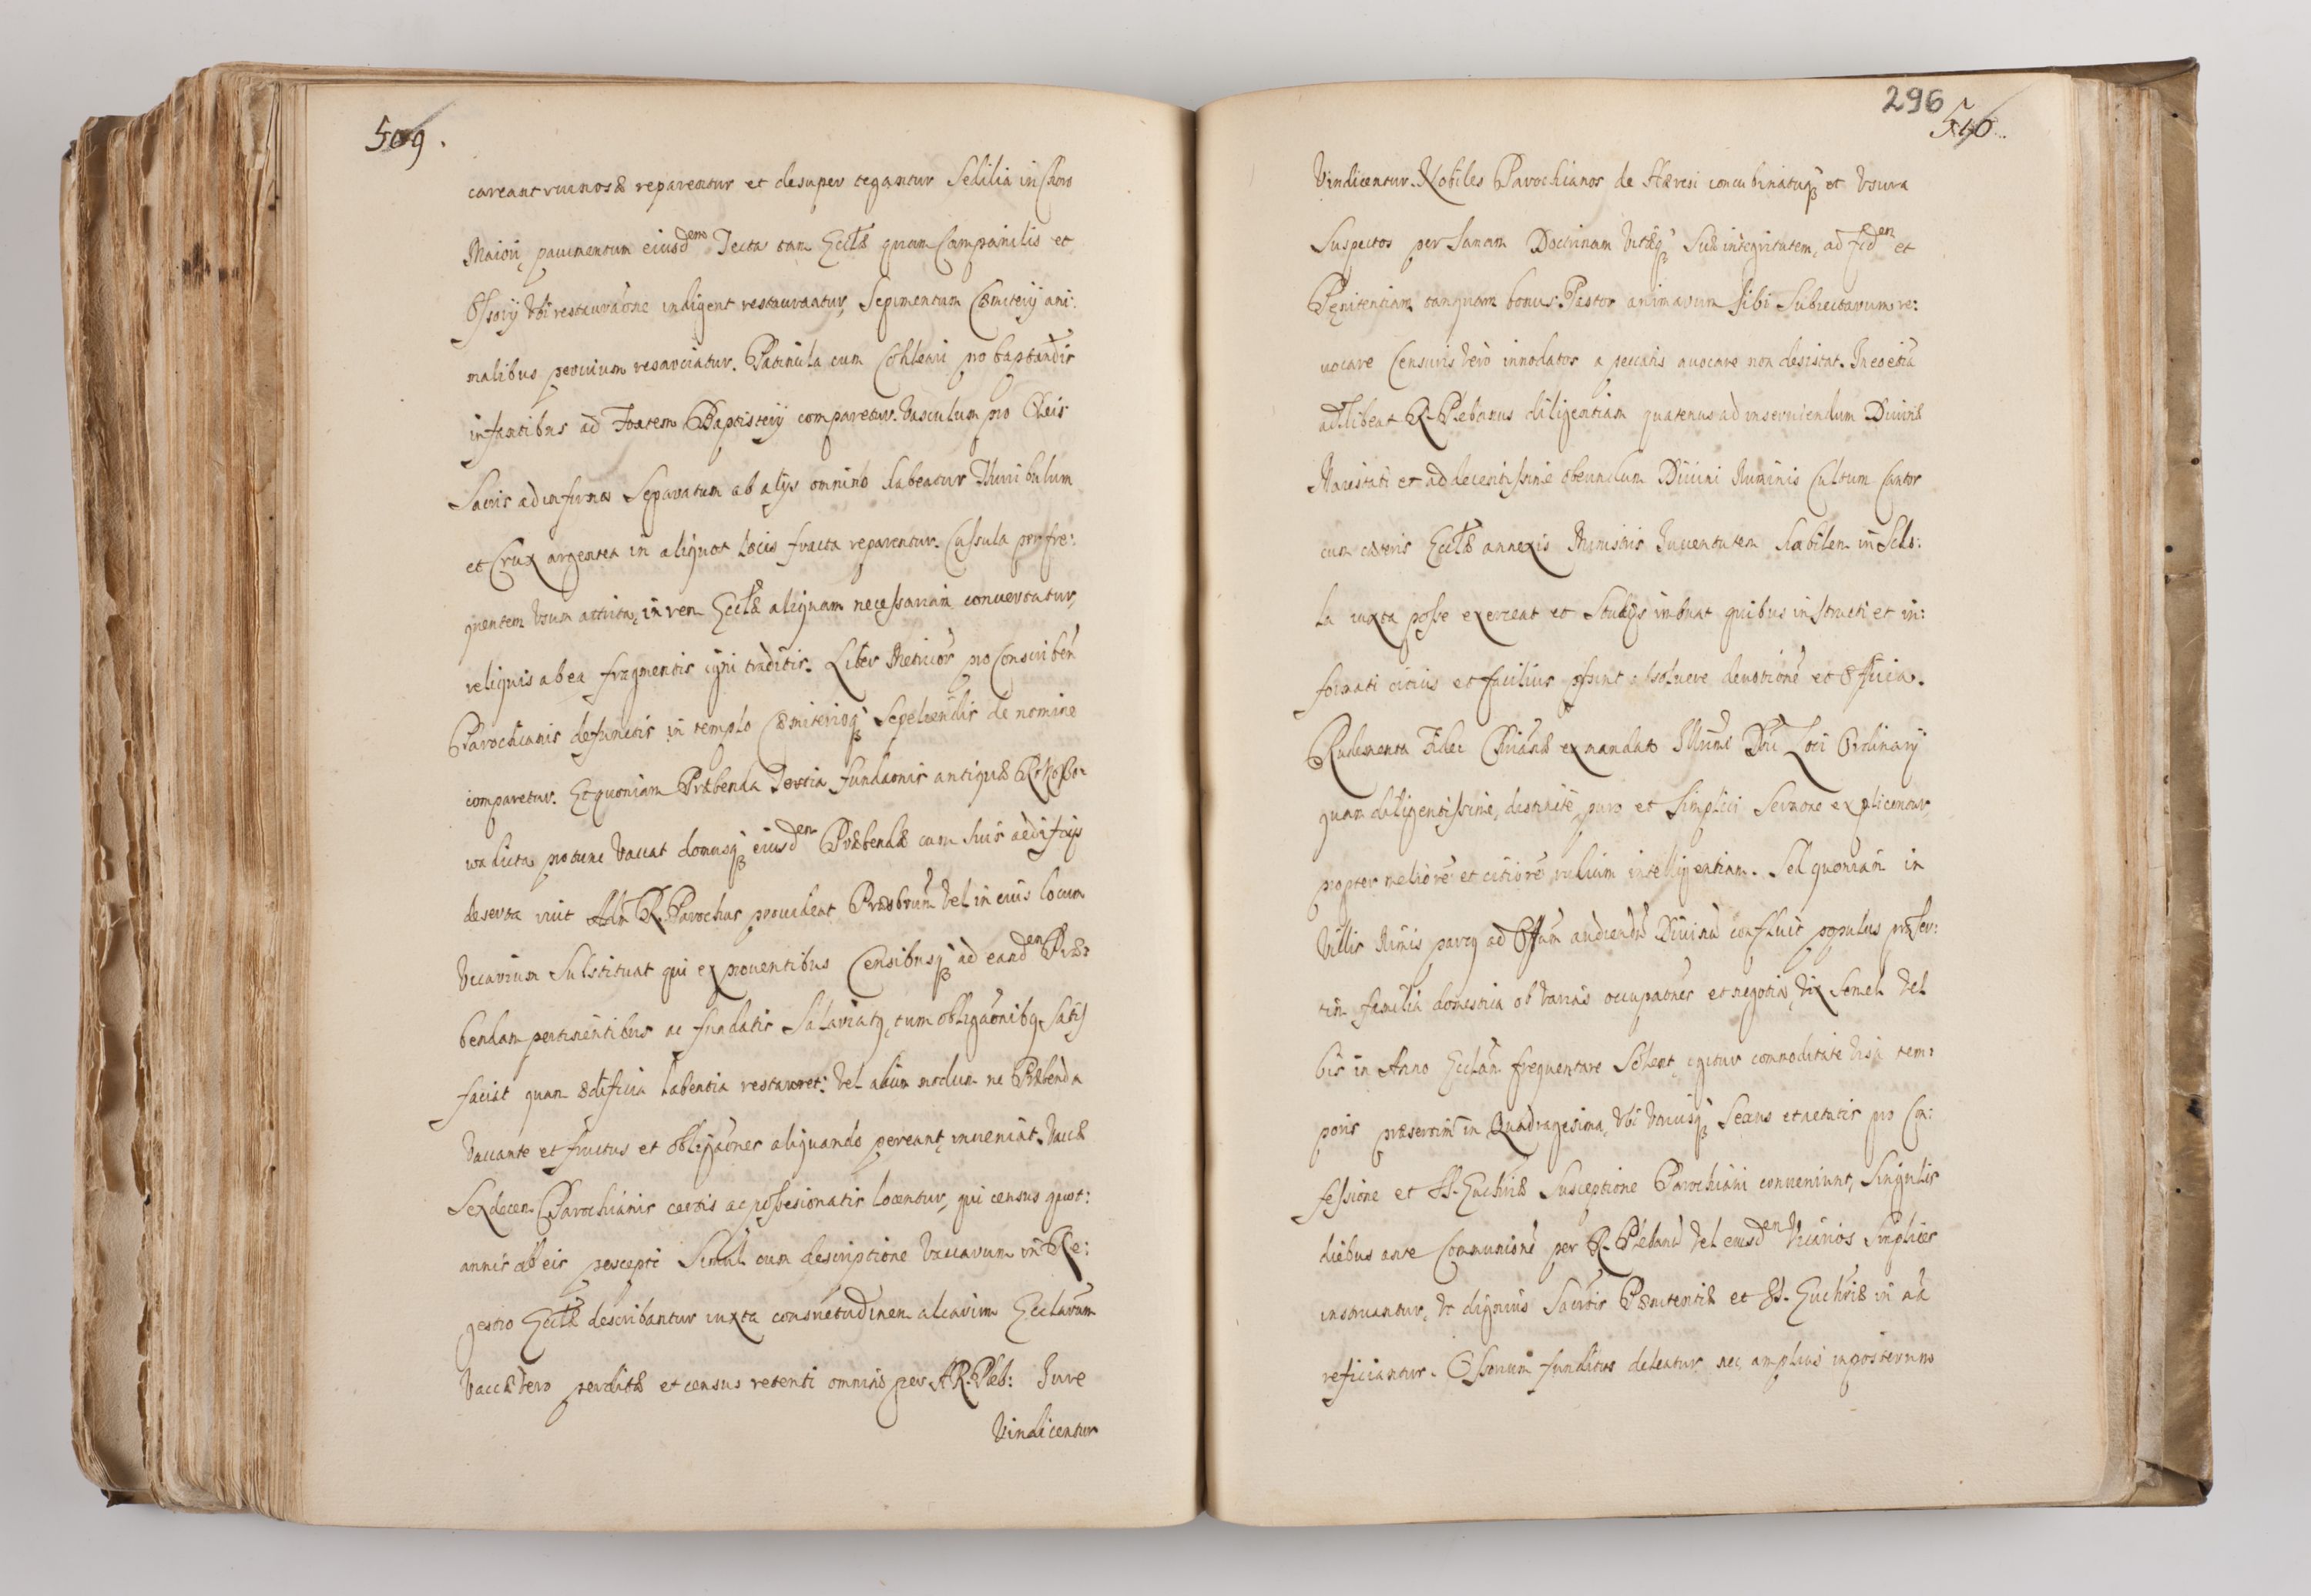 509.
careant ruinosæ reparentur et desuper tegantur Sedilia in Choro
Maiori, pauimentum eiusdem Tecta tam Eccłæ quam Campanilis et
Ossorij Vbi restauraōne indigent restaurantur, Sepimentum Cœmiterij ani:
malibus peruium resarciatur. Patinula cum Cohleari pro baptandis
infantibus ad Fontem Baptisterij comparetur. Vasculum pro Oleis
Sacris ad infirmos Separatum ab alijs omnino habeatur Thuribulum
et Crux argentea in aliquot locis fracta reparentur. Cassula per fre:
quentem Vsum attrita, in rem Eccłæ aliquam necessariam conuertatur,
reliquis ab ea fragmentis igni traditis. Liber Metricor pro Conscriben
Parochianis defunctis in templo Cœmiterioqȝ Sepeliendis de nomine
comparetur. Et quoniam Præbenda Tertia fundaonis antiquæ
dicta pro tunc Vacat domusqȝ eiusdem Præbendæ cum suis aedificijs
deserta ruit Adm R. Parochus prouideat Præsbrum Vel in eius locum
Vicarium Substituat qui ex prouentibus Censibusqȝ ad eandem Præ:
bendam pertinentibus ac fundatis Salariatq, tum obligaōnibq Satis
faciat quam ædificia labentia restauret: Vel alium modum ne Præbenda
Vacante et fructus et obligaōnes aliquando pereant, inueniat. Vaccæ
Sexdecem Parochianis certis ac possesionatis locentur, qui census quot:
annis ab eis percepti Simul cum descriptione Vaccarum in Re:
gestro Eccłæ describantur iuxta consuetudinem aliarum Ecclarum
Vaccæ Vero perditæ et census retenti omnino per A R. Pleb: Iure
Vindicentur
296
510.
Vindicentur. Nobiles Parochianos de Hæresi concubinatuqȝ et Vsura
Suspectos per Sanam Doctrinam Vitæqȝ Suæ integritatem, ad fidem et
Pęnitentiam tanquam bonus Pastor animarum sibi Subiectarum re:
uocare Censuris Vero innodatos a peccatis auocare non desistat. In eo etia
adhibeat R. Plebanus diligentiam quatenus ad inseruiendum Diuinæ
Maiestati et ad decentissime obeundum Diuini Numinis Cultum Cantor
cum cæteris Eccłæ annexis Ministris Iuuentutem habilem in Scho:
la iuxta posse exerceat et Studijs imbuat quibus instructi et in:
formati citius et facilius possint absoluere deuotionē et Officia.
Rudimenta Fidei Chrianæ ex mandato Illumi Dni Loci Ordinarij
quam diligentissime, distincte, puro et Simplici Sermone explicentur,
propter meliorē et citiorē rudium intelligentiam. Sed quoniam in
Villis Nimis parcq ad Offum audiendū Diuinū confluit populus præser:
tim familia domestica ob Varias occupaōnes et negotia, Vix Semel Vel
bis in Anno Ecclām frequentare Solent, igitur commoditate Visa tem:
poris præsertim in Quadragesima, Vbi Vtriusqȝ Sexus et aetatis pro Con:
fessione et SS. Euchriæ Susceptione Parochiani conueniunt, Singulis
diebus ante Communionē per R. Plebanū Vel eiusdem Vicarios Simpliciter
instruantur, Vt dignius Sacrtis Pœnitentiæ et SS. Euchriæ in
reficiantur. Ossorium funditus deleatur nec amplius in posterum